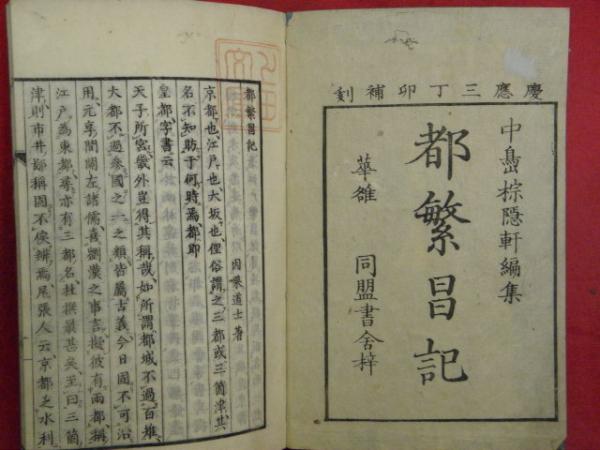 慶應三丁卯補刻
中島棕隱軒編集
都繁昌記
華雒 同盟書舎梓
都繁昌記
因果道士著
京都也江戸也大坂也俚俗謂之三都或三箇津其
名不知昉于何時爲都即
皇都字書云
天子所宮畿外豈得其稱哉如所謂都城不過百雉
大都不過參國之一之類皆屬古義今日固不可沿
用元享間闤左諸儒喜劉漢之事言擬彼有兩都稱
江戸爲東都尋亦有三都名杜撰最甚矣至曰三箇
津則市井鄙稱固不俟辨焉尾張人云京都乏水利